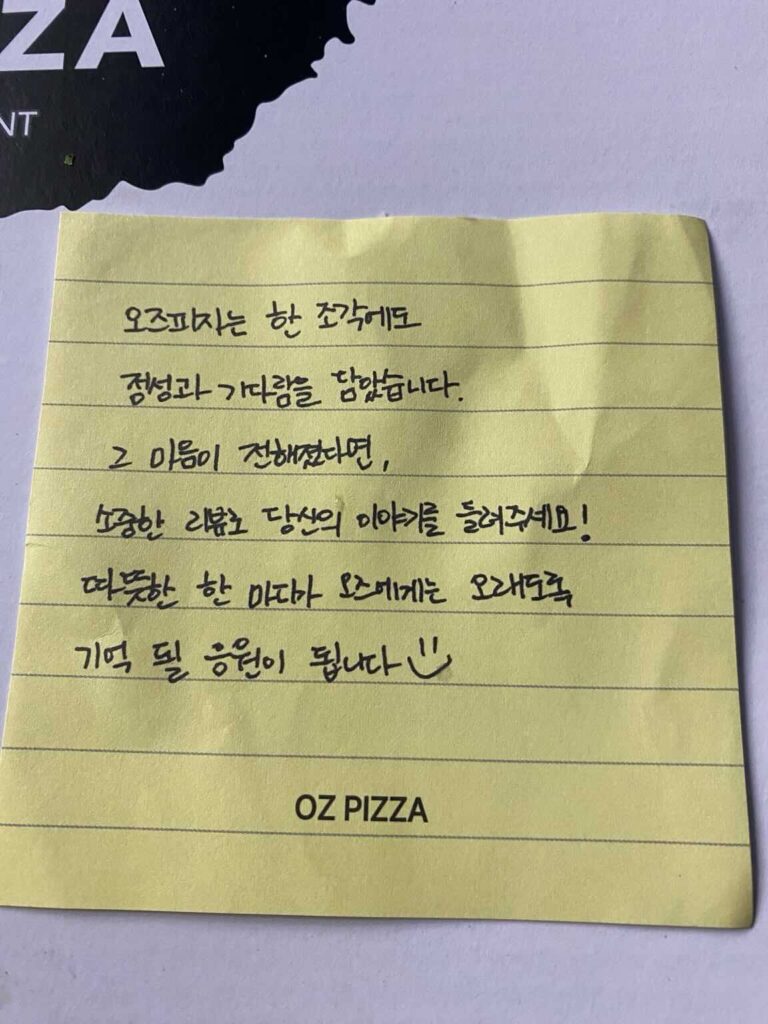 ZZA
NT
오즈피자는 한 조각에도
정성과 기다림을 담았습니다.
그 마음이 전해졌다면,
소중한 리뷰로 당신의 이야기를 들려주세요!
따뜻한 한 마디가 오즈에게는 오래도록
기억 될 응원이 됩니다
OZ PIZZA